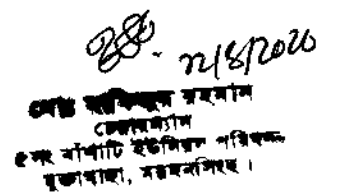 ১২/৪/২০২০
রহমান
চেয়ারম্যান
৫নং বাঁশাটি ইউনিয়ন পরিষদ
মুক্তাগাছা, ময়মনসিংহ।